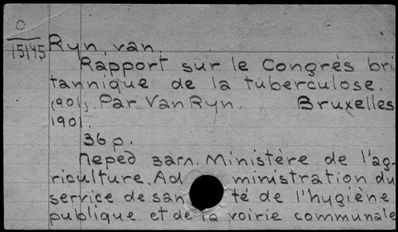 0
15145
Ryn, van.
Rapport sur le Congrès bri
tannique de la tuberculose.
(901). Par Van Ryn. Bruxelles
1901.
36 p.
Перед загл. Ministère de l'ag-
riculture. Ad ministration du
service de san té de l'hygiène
publique et de la voirie communale